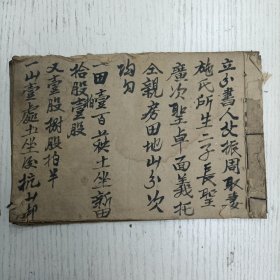 立分書人父振周取妻
施氏所生二子長聖
廣次聖卓面義托
仝親房田地山分次
均匀
一田壹百 秧土坐新田
拾股壹股
又壹股 股拍早
一山壹處土坐 坑山